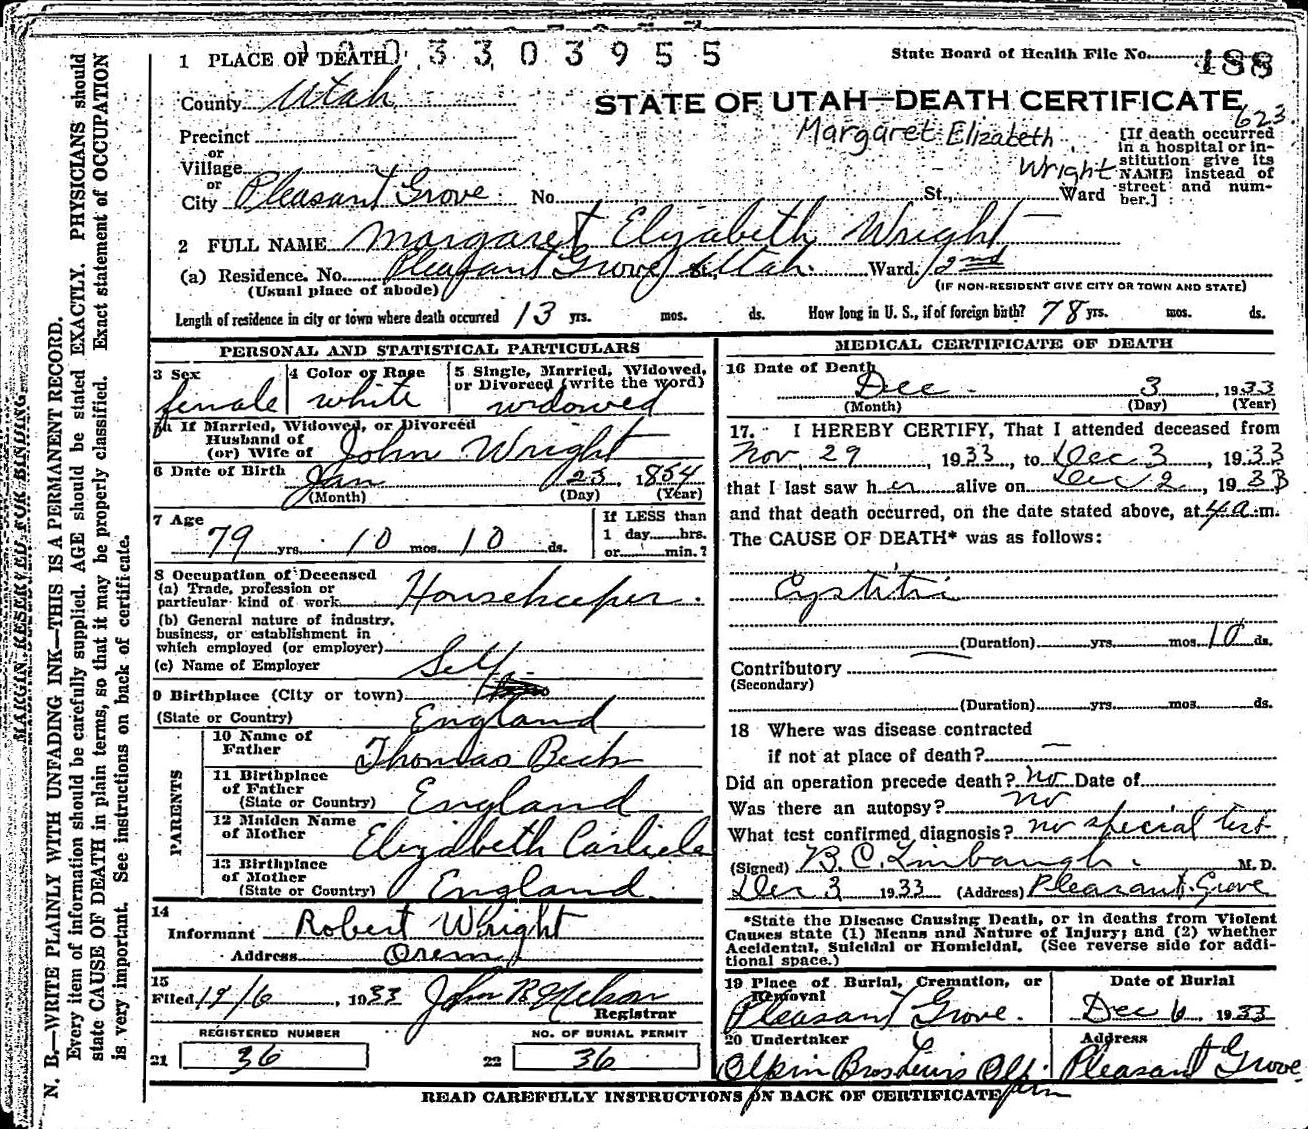 1 PLACE OF DEATH 3 3 0 3 9 5 5
State Board of Health File No. 488
County Utah
STATE OF UTAH—DEATH CERTIFICATE
623
Precinct
or
Village
or
City Pleasant Grove No. St., Ward
Margaret Elizabeth
Wright
[If death occurred
in a hospital or in-
stitution give its
NAME instead of
street and num-
ber.]
2 FULL NAME Margaret Elizabeth Wright
(a) Residence. No. Pleasant Grove Utah. Ward. 2nd
(Usual place of abode) (IF NON-RESIDENT GIVE CITY OR TOWN AND STATE)
Length of residence in city or town where death occurred 13 yrs. mos. ds. How long in U. S., if of foreign birth? 78 yrs. mos. ds.
PERSONAL AND STATISTICAL PARTICULARS
3 Sex 4 Color or Race 5 Single, Married, Widowed,
or Divorced (write the word)
female white widowed
5a If Married, Widowed, or Divorced
Husband of
(or) Wife of John Wright
6 Date of Birth Jan 23, 1854
(Month) (Day) (Year)
7 Age
79 yrs. 10 mos. 10 ds.
If LESS than
1 day hrs.
or min.?
8 Occupation of Deceased
(a) Trade, profession or
particular kind of work Housekeeper.
(b) General nature of industry,
business, or establishment in
which employed (or employer)
(c) Name of Employer Self
9 Birthplace (City or town)
(State or Country) England
PARENTS
10 Name of
Father Thomas Beck
11 Birthplace
of Father
(State or Country) England
12 Maiden Name
of Mother Elizabeth Carlisle
13 Birthplace
of Mother
(State or Country) England
14
Informant Robert Wright
Address Orem
15
Filed 12/6, 1933 John R Nelson
Registrar
REGISTERED NUMBER NO. OF BURIAL PERMIT
21 36 22 36
MEDICAL CERTIFICATE OF DEATH
16 Date of Death
Dec. 3, 1933
(Month) (Day) (Year)
17. I HEREBY CERTIFY, That I attended deceased from
Nov, 29, 1933, to Dec 3, 1933
that I last saw her alive on Dec 2, 1933
and that death occurred, on the date stated above, at 4 a.m.
The CAUSE OF DEATH* was as follows:
Cystitis
(Duration) yrs. mos. 10 ds.
Contributory
(Secondary)
(Duration) yrs. mos. ds.
18 Where was disease contracted
if not at place of death?
Did an operation precede death? no Date of
Was there an autopsy? no
What test confirmed diagnosis? no special test
(Signed) B. C. Linebaugh. M. D.
Dec 3 1933 (Address) Pleasant Grove
*State the Disease Causing Death, or in deaths from Violent
Causes state (1) Means and Nature of Injury; and (2) whether
Accidental, Suicidal or Homicidal. (See reverse side for addi-
tional space.)
19 Place of Burial, Cremation, or
Removal
Pleasant Grove.
Date of Burial
Dec 6 1933
20 Undertaker Address
Olpin Bros Lewis Olpin Pleasant Grove
READ CAREFULLY INSTRUCTIONS ON BACK OF CERTIFICATE
MARGIN RESERVED FOR BINDING
N. B.—WRITE PLAINLY WITH UNFADING INK—THIS IS A PERMANENT RECORD.
Every item of information should be carefully supplied. AGE should be stated EXACTLY. PHYSICIANS should
state CAUSE OF DEATH in plain terms, so that it may be properly classified. Exact statement of OCCUPATION
is very important. See instructions on back of certificate.